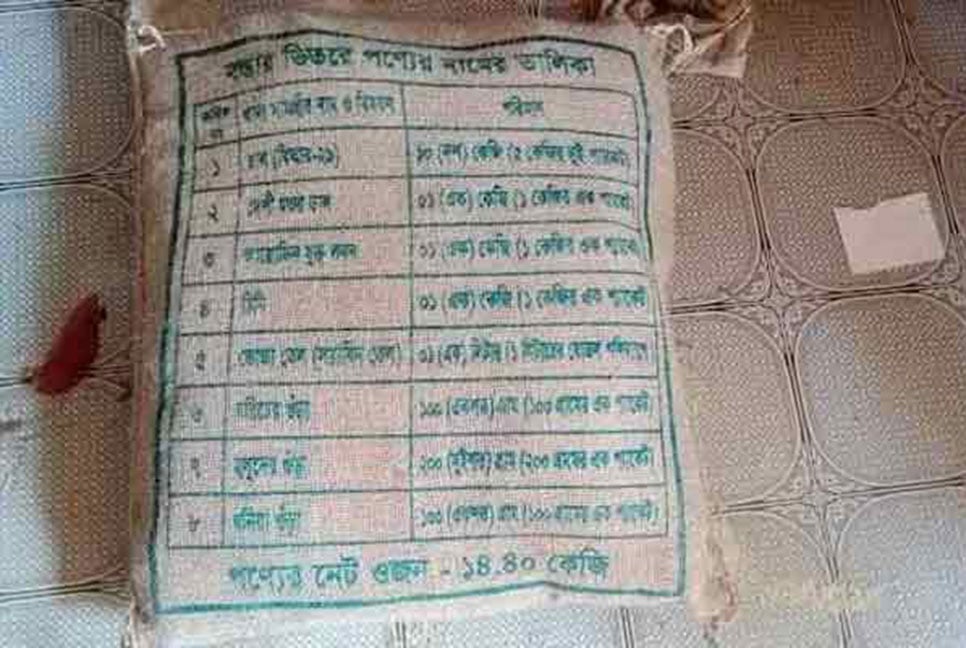 বস্তার ভিতরে পণ্যের নামের তালিকা
ক্রমিক নং খাদ্য সামগ্রীর নাম ও বিবরণ পরিমাণ
১ চাল (বিআর-২৯) ১০ (দশ) কেজি (৫ কেজির দুই প্যাকেট)
২ দেশী মসুর ডাল ০১ (এক) কেজি (১ কেজির এক প্যাকেট)
৩ আয়োডিন যুক্ত লবন ০১ (এক) কেজি (১ কেজির এক প্যাকেট)
৪ চিনি ০১ (এক) কেজি (১ কেজির এক প্যাকেট)
৫ ভোজ্য তেল (সয়াবিন তেল) ০১ (এক) লিটার (১ লিটারের বোতল
৬ মরিচের গুঁড়া ১০০ (একশত) গ্রাম (১০০ গ্রামের এক প্যাকেট)
৭ হলুদের গুঁড়া ২০০ (দুইশত) গ্রাম (২০০ গ্রামের এক প্যাকেট)
৮ ধনিয়া গুঁড়া ১০০ (একশত) গ্রাম (১০০ গ্রামের এক প্যাকেট)
পণ্যের নেট ওজন - ১৪.৪০ কেজি